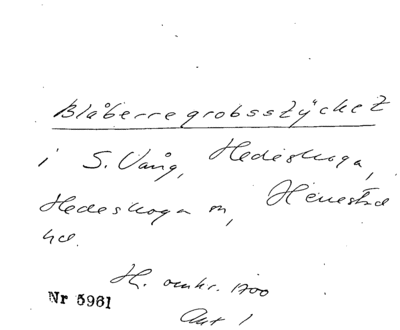 Blåberregrobsstÿcket
i S. Vång, Hedeskoga,
Hedeskoga sn, Herrestad
hd.
H. omkr. 1700
Akt 1
Nr 5961